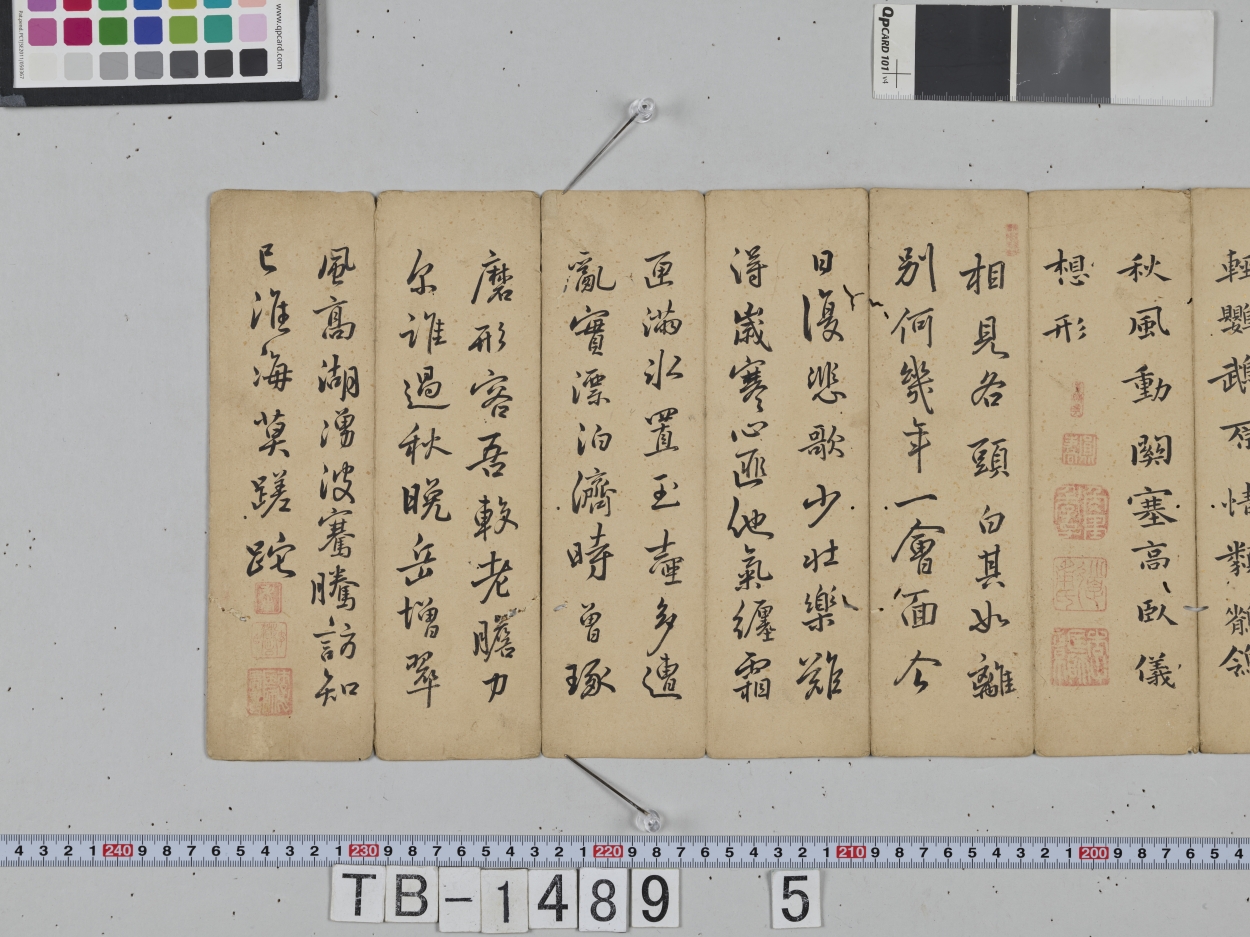 輕鸚鵡原情類鶺鴒
秋風動關塞高臥儀
想形
相見各頭白其如離
別何幾年一會面今
日復悲歌少壯樂難
得歲寒心匪他氣纏霜
匣滿冰置玉壺多遭
亂實漂泊濟時曾琢
磨形容吾較老膽力
尔誰過秋晚岳增翠
風高湖湧波騫騰訪知
已淮海莫蹉跎
www.qpcard.com
QpCARD 101 v4
4 3 2 1 240 9 8 7 6 5 4 3 2 1 230 9 8 7 6 5 4 3 2 1 220 9 8 7 6 5 4 3 2 1 210 9 8 7 6 5 4 3 2 1 200 9 8 7 6 5 4
TB-1489 5